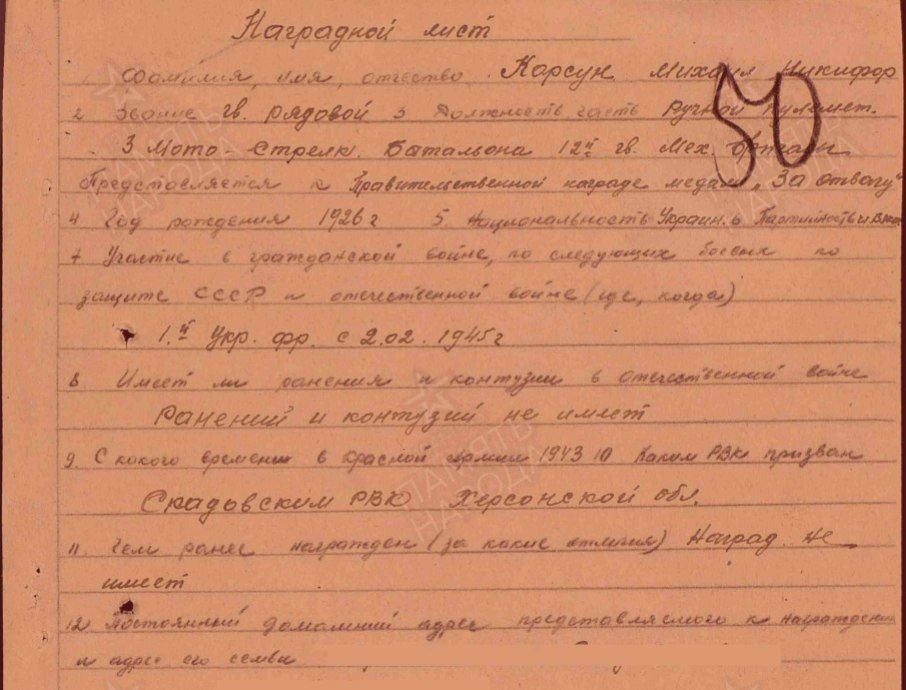 Наградной лист
1 Фамилия, имя, отчество Корсун Михаил Никифор
2 Звание гв. рядовой 3 Должность часть Ручной пулемет.
50
3 Мото-Стрелк. Батальона 12й гв. Мех. бригады
Представляется к Правительственной награде медаль „За отвагу"
4 Год рождения 1926 г 5 Национальность Украин. 6 Партийность
7 Участие в гражданской войне, по следующих боевых по
защите СССР и отечественной войне (где, когда)
1.й Укр. фр. с 2.02.1945 г
8 Имеет ли ранения и контузии в отечественной войне
Ранений и контузий не имеет
9. С какого времени в Красной армии 1943 10 Каким РВК призван
Скадовским РВК Херсонской обл.
11. Чем ранее награжден (за какие отличия) Наград не
имеет
12 Постоянный домашний адрес представляемого к награждению
и адрес его семьи
ПАМЯТЬ
НАРОДА